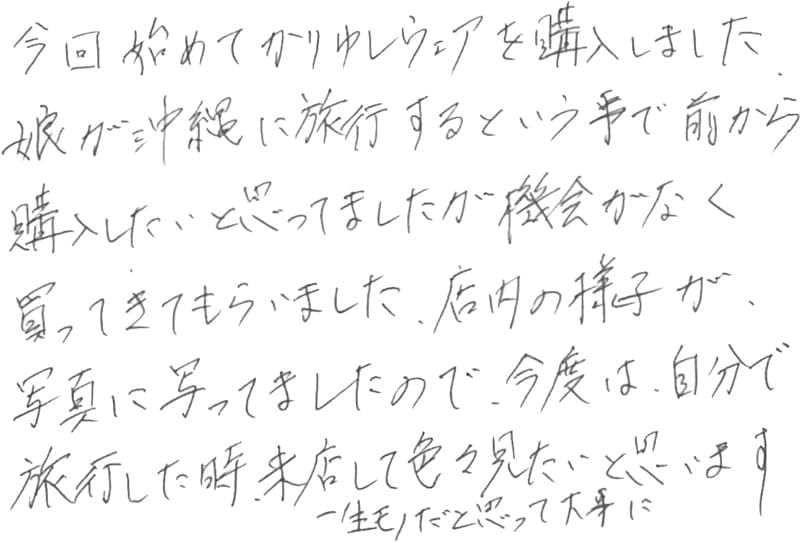 今回始めてかりゆしウェアを購入しました、
娘が沖縄に旅行するという事で前から
購入したいと思ってましたが機会がなく
買ってきてもらいました、店内の様子が、
写真に写ってましたので、今度は、自分で
旅行した時、来店して色々見たいと思います
一生モノだと思って大事に